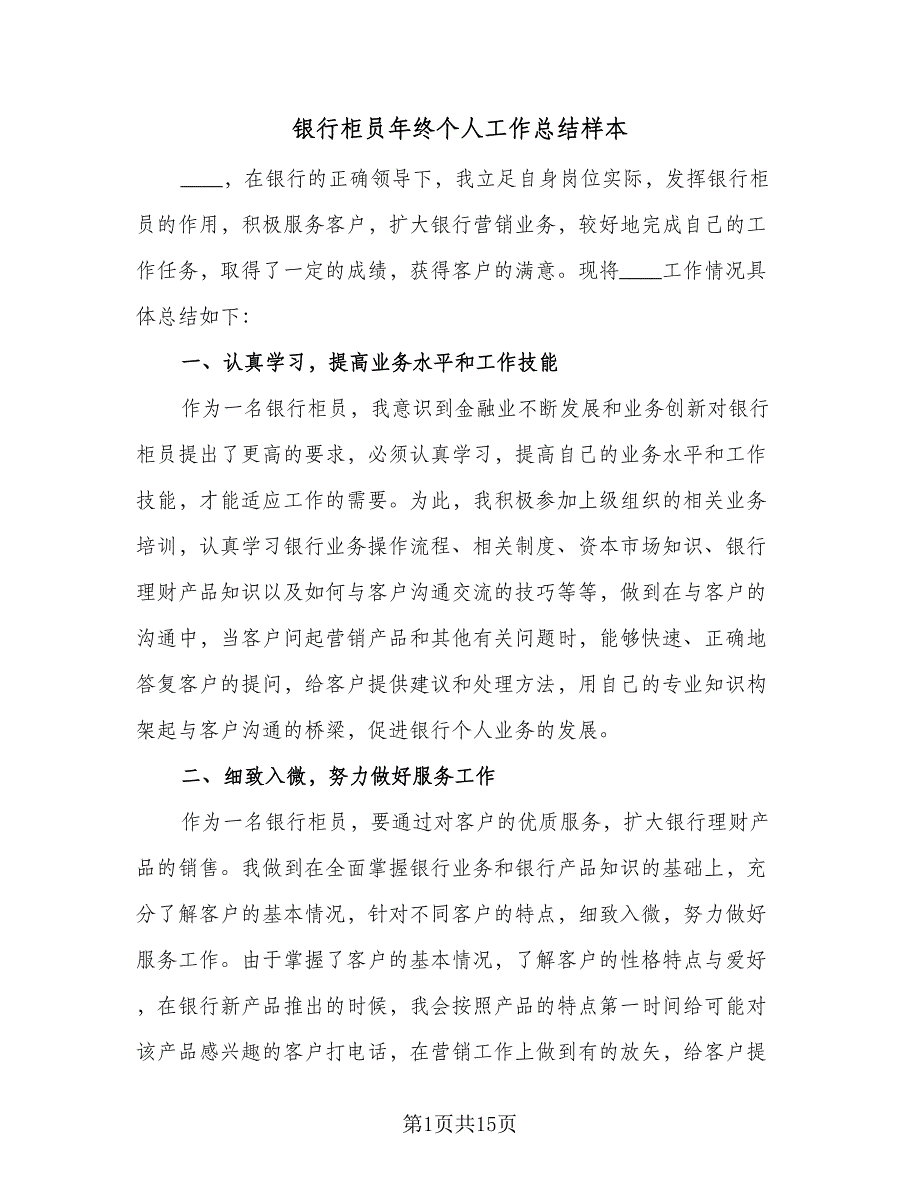 银行柜员年终个人工作总结样本
____，在银行的正确领导下，我立足自身岗位实际，发挥银行柜
员的作用，积极服务客户，扩大银行营销业务，较好地完成自己的工
作任务，取得了一定的成绩，获得客户的满意。现将____工作情况具
体总结如下：
一、认真学习，提高业务水平和工作技能
作为一名银行柜员，我意识到金融业不断发展和业务创新对银行
柜员提出了更高的要求，必须认真学习，提高自己的业务水平和工作
技能，才能适应工作的需要。为此，我积极参加上级组织的相关业务
培训，认真学习银行业务操作流程、相关制度、资本市场知识、银行
理财产品知识以及如何与客户沟通交流的技巧等等，做到在与客户的
沟通中，当客户问起营销产品和其他有关问题时，能够快速、正确地
答复客户的提问，给客户提供建议和处理方法，用自己的专业知识构
架起与客户沟通的桥梁，促进银行个人业务的发展。
二、细致入微，努力做好服务工作
作为一名银行柜员，要通过对客户的优质服务，扩大银行理财产
品的销售。我做到在全面掌握银行业务和银行产品知识的基础上，充
分了解客户的基本情况，针对不同客户的特点，细致入微，努力做好
服务工作。由于掌握了客户的基本情况，了解客户的性格特点与爱好
，在银行新产品推出的时候，我会按照产品的特点第一时间给可能对
该产品感兴趣的客户打电话，在营销工作上做到有的放矢，给客户提
第1页共15页